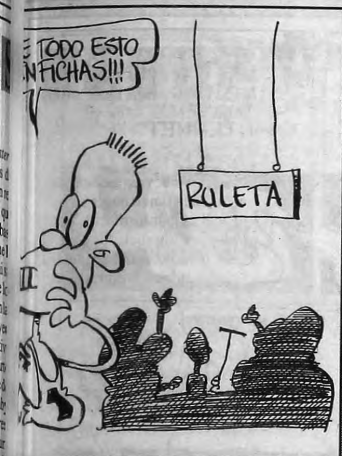 E TODO ESTO
EN FICHAS!!!
RULETA